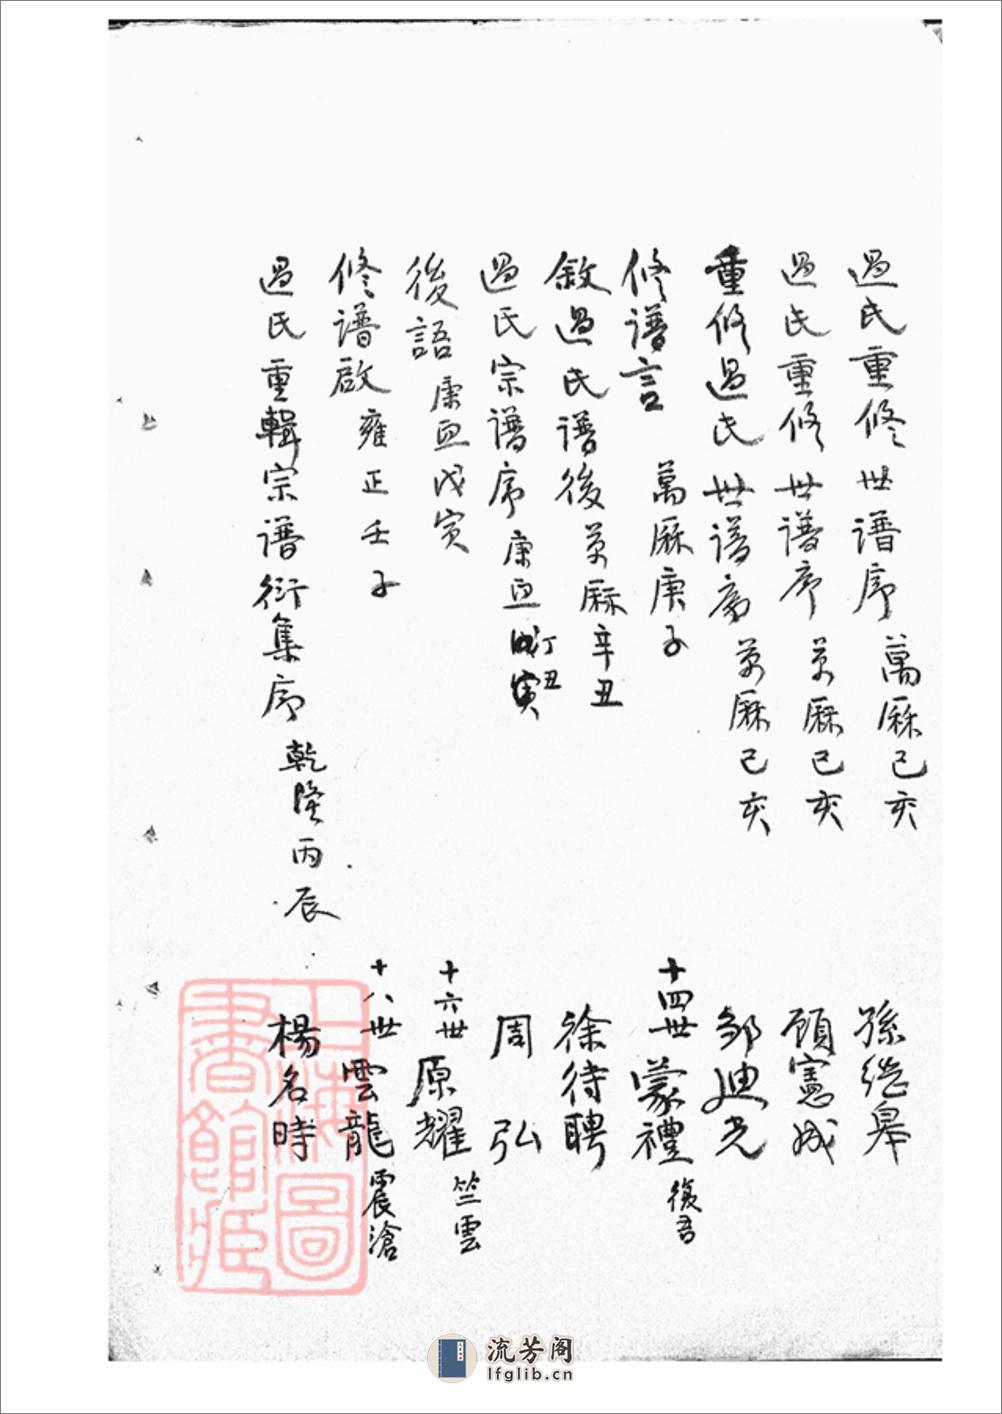 過氏重修世譜序 萬厤己亥 孫继皋
過氏重修世譜序 萬厤己亥 顧憲成
重修過氏世譜序 萬厤己亥 邹迪光
修譜言 萬厤庚子 十四世 蒙禮 復吾
敘過氏譜後 萬厤辛丑 徐待聘
過氏宗譜序 康熙丁丑 周弘
後語 康熙戊寅 十六世 原耀 竺雲
修譜啟 雍正壬子 十八世 雲龍 震滄
過氏重輯宗譜衍集序 乾隆丙辰 楊名時
上海圖書館藏
流芳阁
lfglib.cn